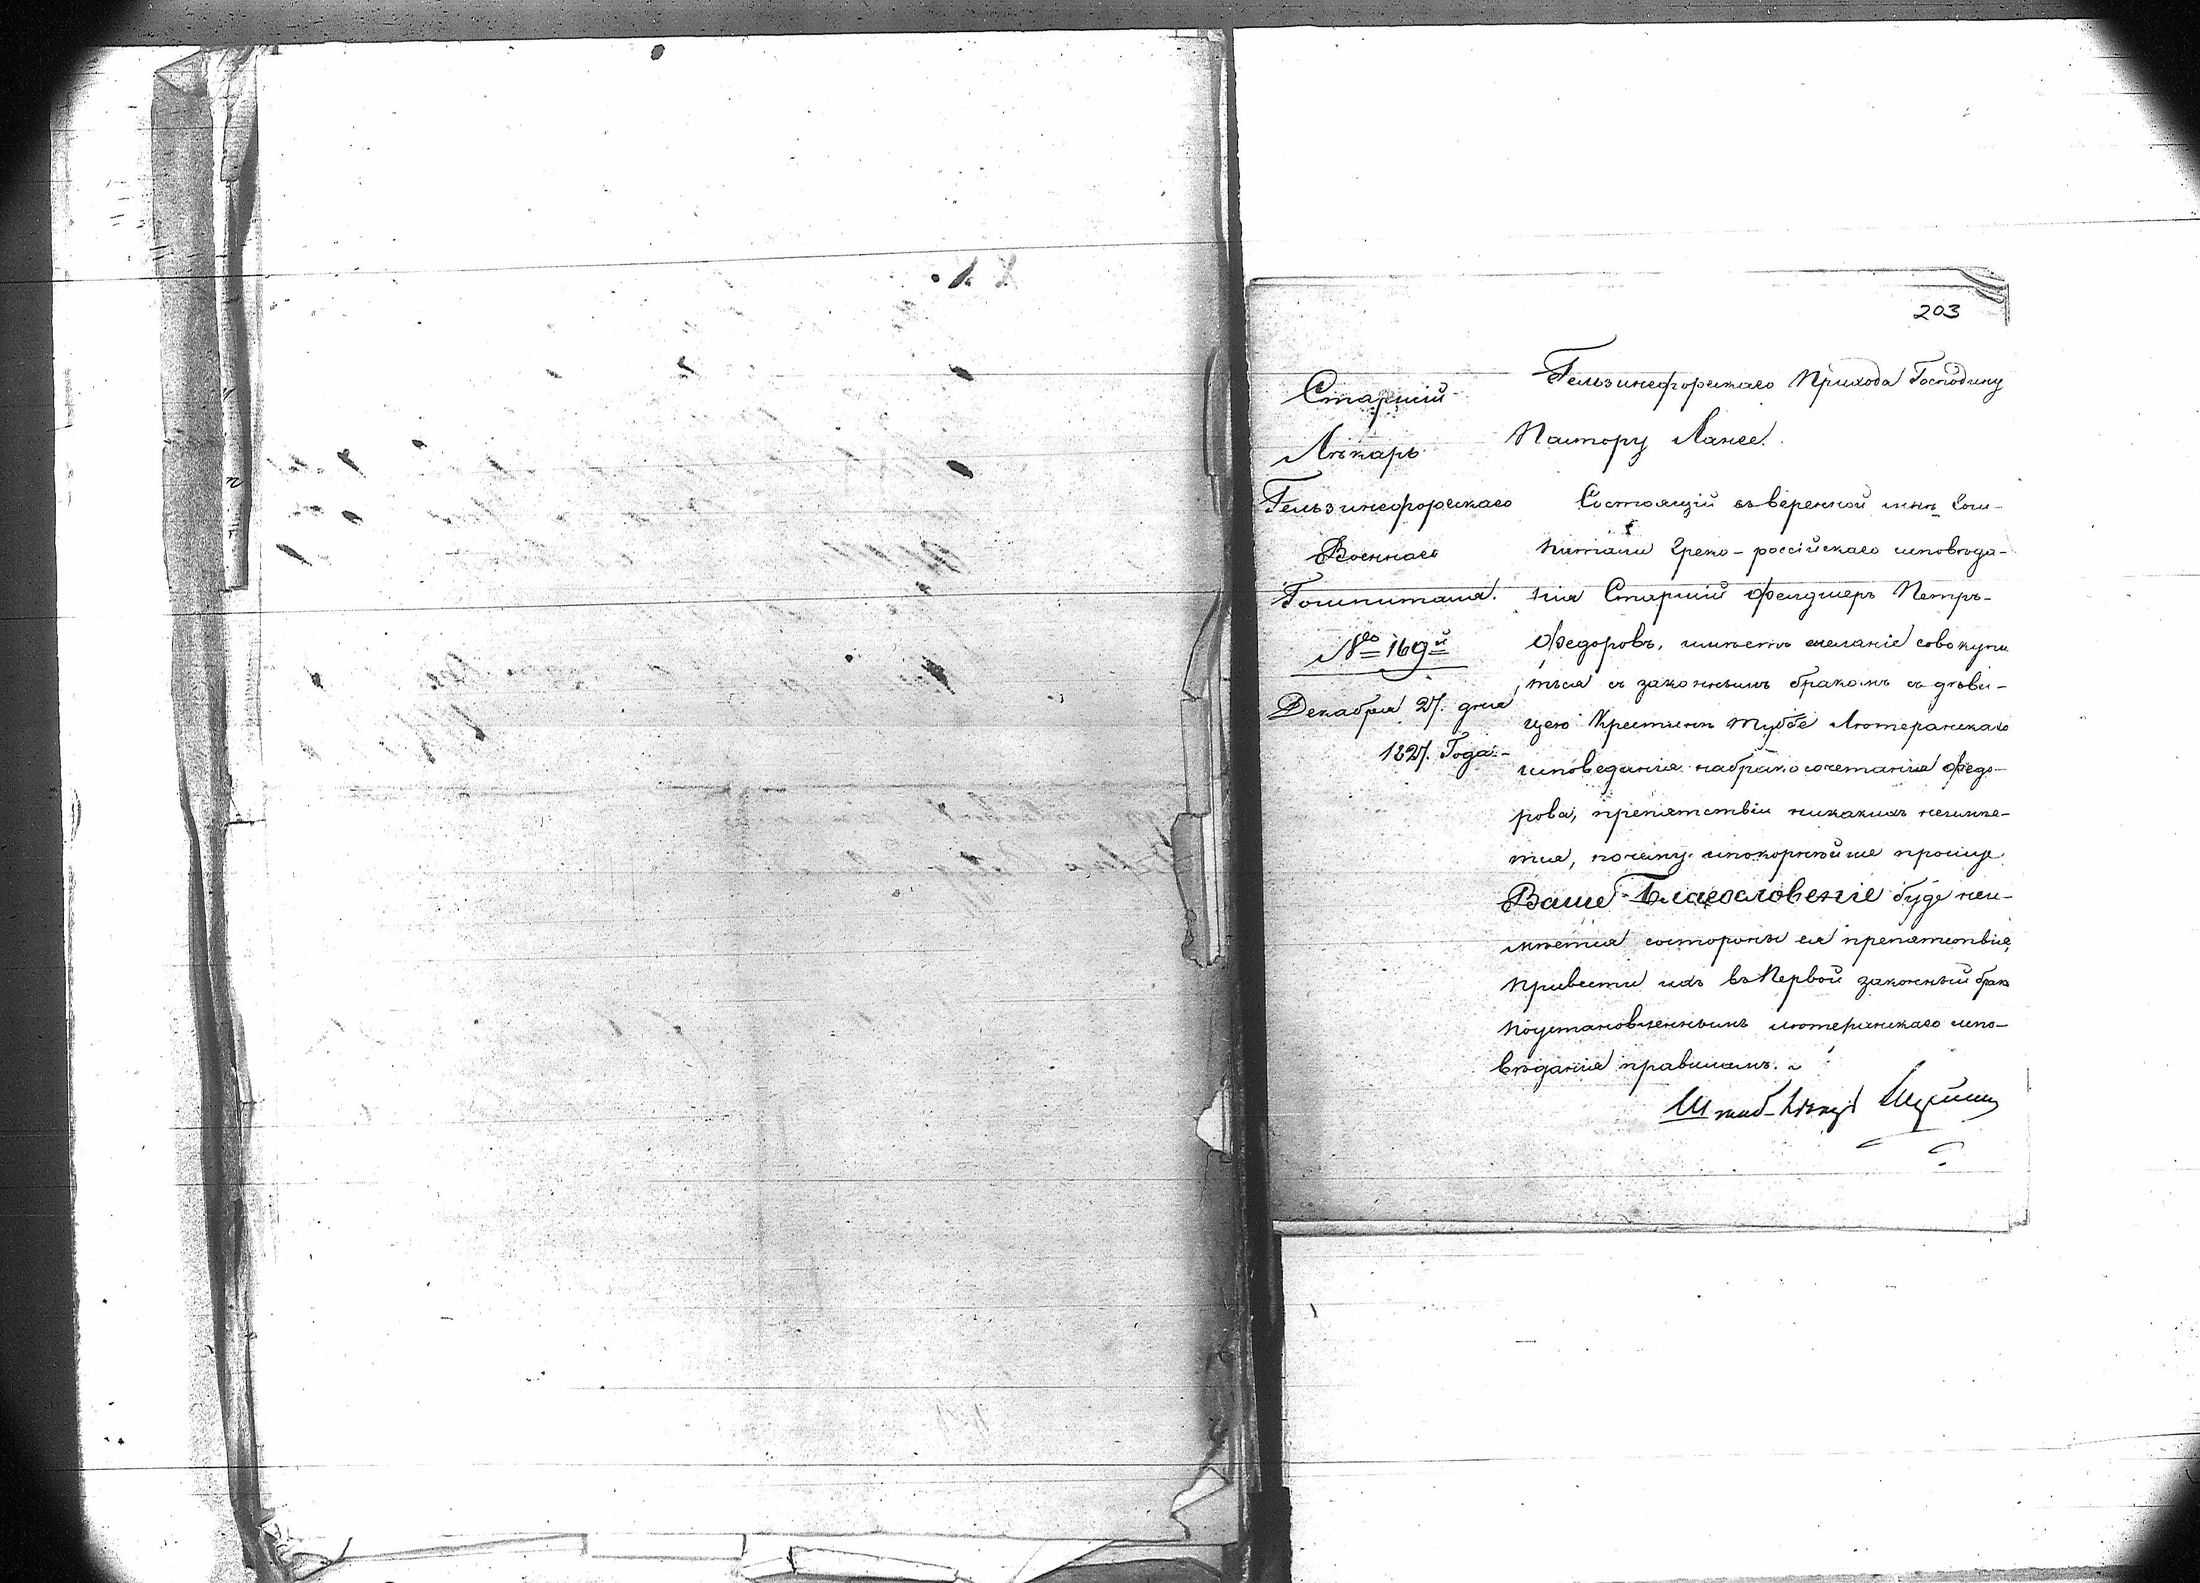 203
Старшій
Лѣкарь
Гельзинсфорскаго
Военнаго
Гошпиталя.
№ 169й
Декабря 27. дня
1827. Года.
Гельзинсфорскаго Прихода Господину
Пастору
Состоящій въвѣренной мнѣ Гош-
питали Греко-россійскаго исповѣда-
нія Старшій Фелдшеръ Петръ-
Федоровъ, имѣетъ желаніе совокупи
ться съ законнымъ бракомъ съ дѣви-
цею Лютеранскаго
исповеданія набракосочетаніе Федо-
рова, препятствіи никакихъ неимѣе-
тся, почему ипокорнѣйше прошу
Ваше Благословеніе буде неи-
мѣется состороны ея препятствіе,
Привести ихъ въПервой законный бракъ
Поустановленнымъ лютеранскаго испо-
вѣданія правиламъ.
Штаб-Лѣкарь